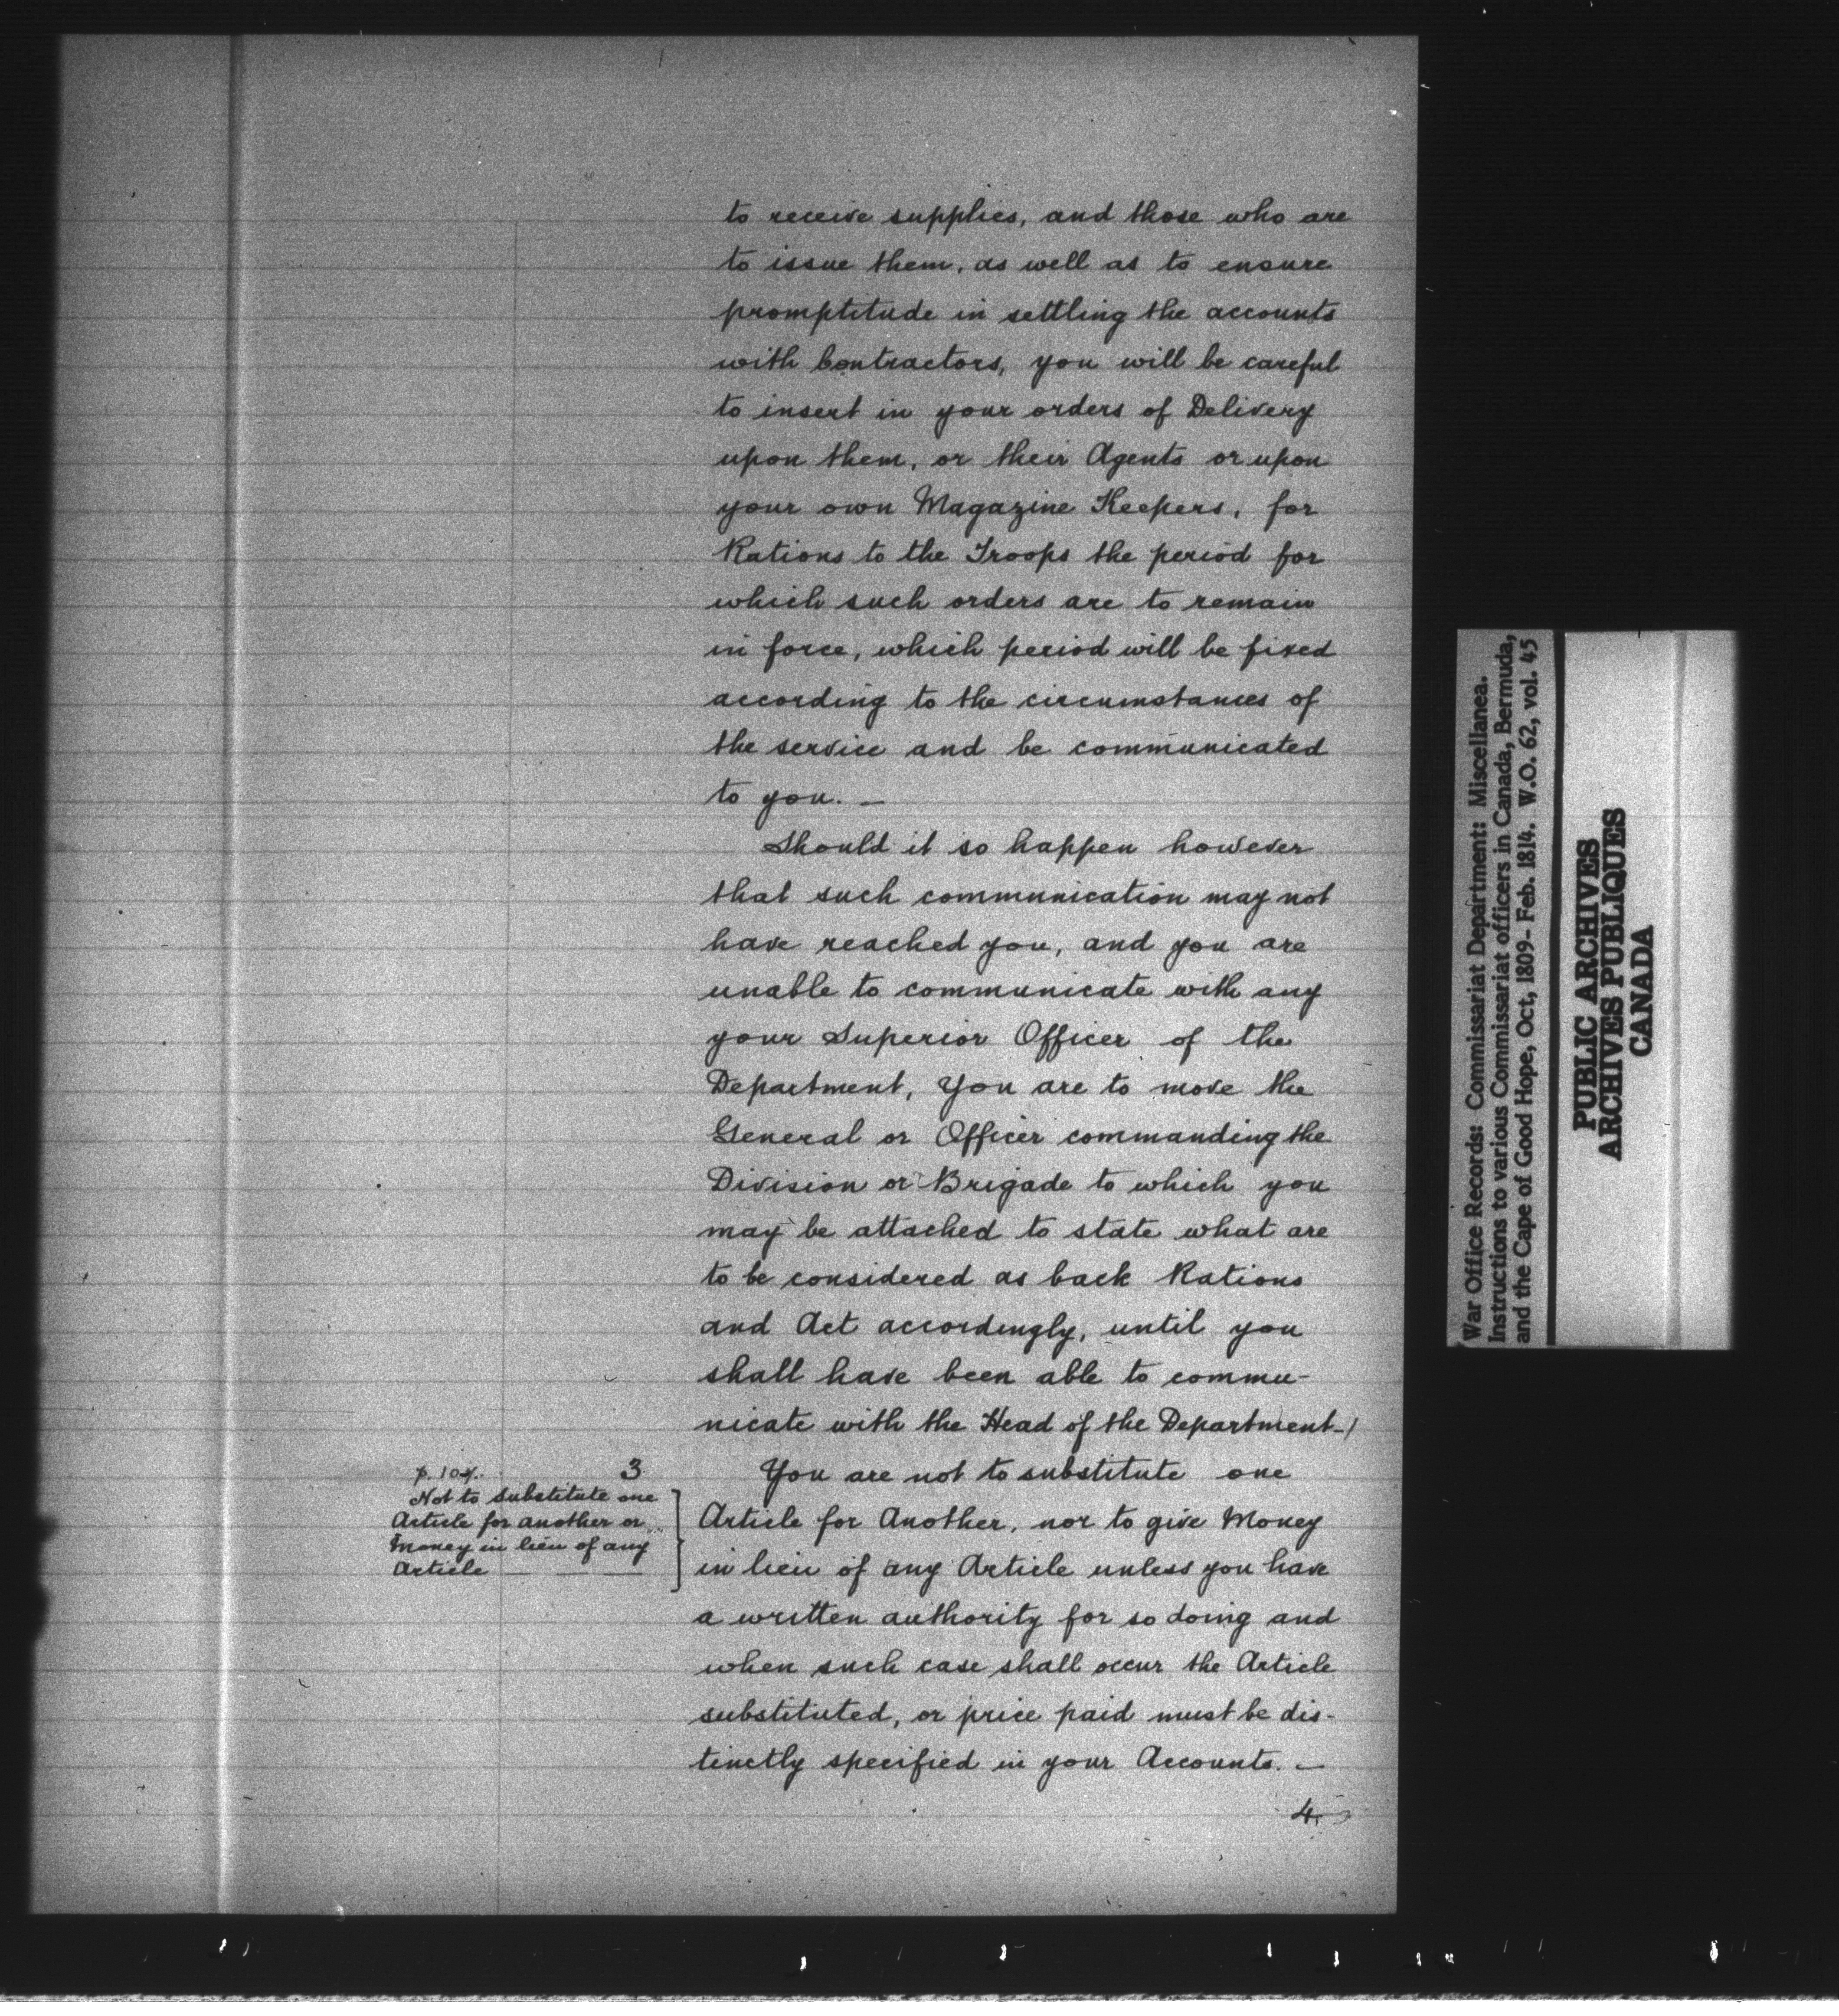 to receive supplies, and those who are
to issue them, as well as to ensure
promptitude in settling the accounts
with Contractors, you will be careful
to insert in your orders of Delivery
upon them, or their Agents or upon
your own Magazine Keepers, for
Rations to the Troops the period for
which such orders are to remain
in force, which period will be fixed
according to the circumstances of
the service and be communicated
to you. —
Should it so happen however
that such communication may not
have reached you, and you are
unable to communicate with any
your Superior Officer of the
Department, You are to move the
General or Officer commanding the
Division or Brigade to which you
may be attached to state what are
to be considered as back Rations
and Act accordingly, until you
shall have been able to commu-
nicate with the Head of the Department-/
p. 104.
3
Not to substitute one
Article for another or
Money in lieu of any
Article — — —
You are not to substitute one
Article for Another, nor to give Money
in lieu of any Article unless you have
a written authority for so doing and
when such case shall occur the Article
substituted, or price paid must be dis-
tinctly specified in your Accounts. —
4.
War Office Records: Commissariat Department: Miscellanea.
Instructions to various Commissariat officers in Canada, Bermuda,
and the Cape of Good Hope, Oct, 1809- Feb. 1814. W.O. 62, vol. 45
PUBLIC ARCHIVES
ARCHIVES PUBLIQUES
CANADA